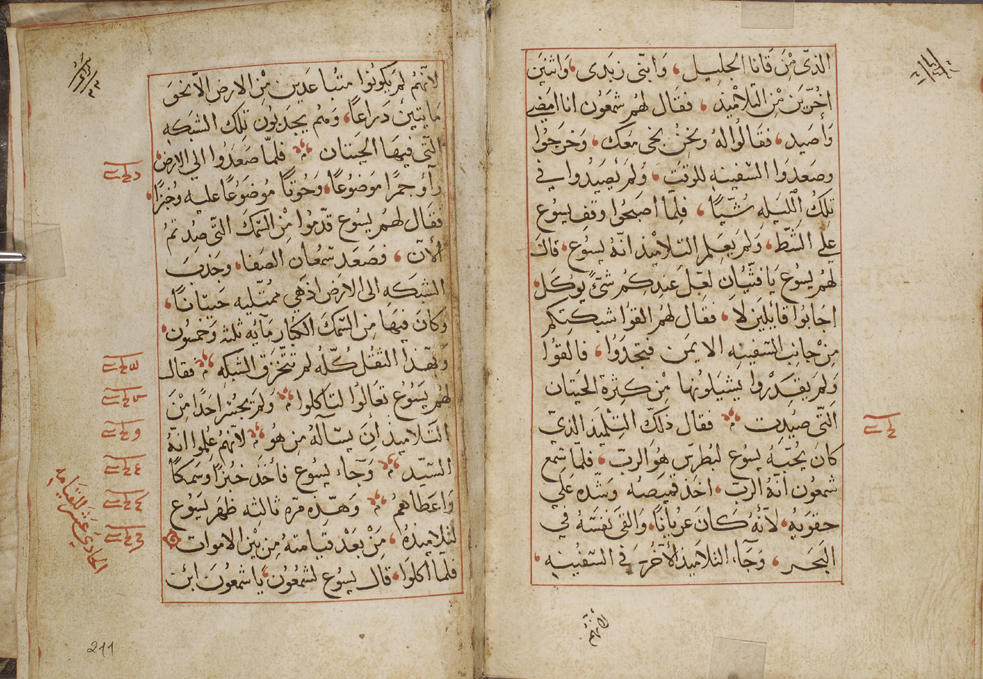 الذي من قانا الجليل، وابني زبدى، واثنين
اخرين من التلاميذ، فقال لهم شمعون انا امضي
واصيد، فقالوا له ونحن نجى معك، وخرجوا
وصعدوا السفينه للوقت، ولم يصيدوا في
تلك الليله شياً، فلما اصبحوا وقف يسوع
على الشط، ولم يعلم التلاميذ انه يسوع، قال
لهم يسوع يا فتيان لعل عندكم شئ يوكل،
اجابوا قايلين لا، فقال لهم القوا شبكتكم
من جانب السفينه الايمن فتجدوا، فالقوا
ولم يقدروا يشيلونها من كثرة الحيتان
التي صيدت فقال ذلك التلميذ الذي
كان يحبه يسوع لبطرس هو الرب، فلما سمع
شمعون انه الرب، اخذ قميصه وشده على
حقويه، لانه كان عرياناً، والقى نفسه في
البحر، وجاء التلاميذ الاخر في السفينه،
لانهم لم يكونوا متباعدين من الارض الا نحو
مايتين دراعاً، وهم يجدبون تلك الشبكه
التي فيها الحيتان فلما صعدوا الى الارض،
راو جمرا موضوعا، وحوتاً موضوعا عليه وخبزا،
فقال لهم يسوع قدموا من السمك التي صدتم
الان، فصعد سمعان الصفا، وجدب
الشبكه الى الارض اذ هي ممتليه حيتاناً،
وكان فيها من السمك الكبار مايه ثلثه وخمسون،
وبهذا الثقل كله لم تتخرق الشبكه فقال
لهم يسوع تعالوا لتاكلوا ولم يجسر احداً من
التلاميذ ان يساله من هو لانهم علموا انه
السيد وجاء يسوع فاخذ خبزاً وسمكاً
واعطاهم وهذه مره ثالثه ظهر يسوع
لتلاميذه، من بعد قيامته من بين الاموات
فلما اكلوا، قال يسوع لشمعون، يا شمعون ابن
الحادي عشر للقيامه
211